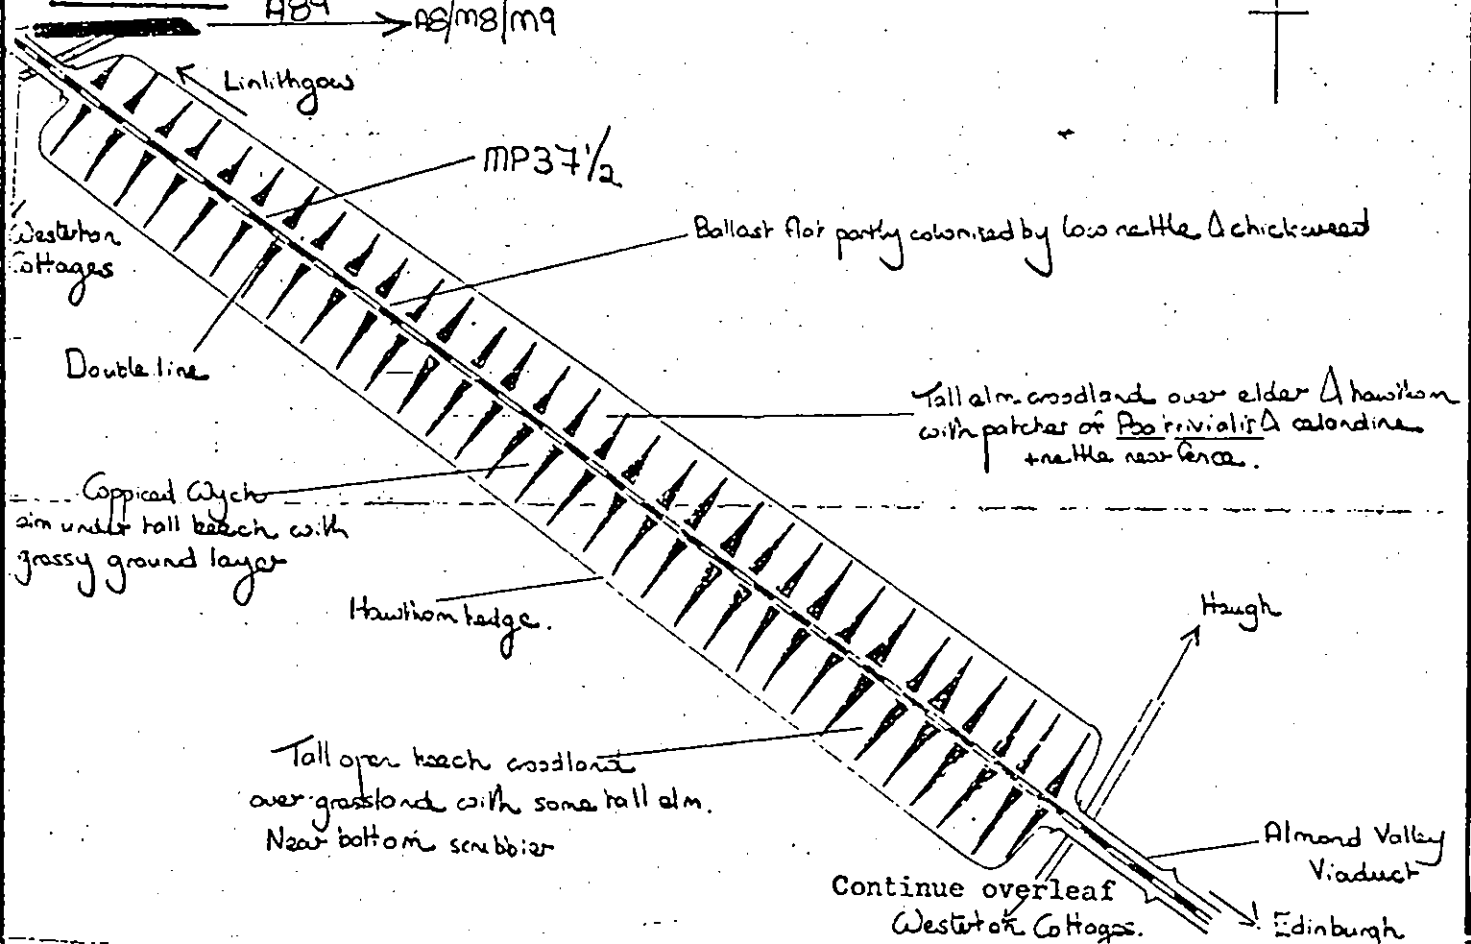 A89
A8/M8/M9
Linlithgow
MP37½
Ballast flat partly colonised by low nettle Δ chickweed
Westerton
Cottages
Double line
Tall elm woodland over elder Δ hawthorn
with patches of Poa trivialis Δ celandine
+ nettle near fence.
Coppiced Wych
elm under tall beech with
grassy ground layer
Hawthorn hedge.
Haugh
Tall open beech woodland
over grassland with some tall elm.
Near bottom scrubbier
Almond Valley
Viaduct
Continue overleaf
Westerton Cottages.
Edinburgh